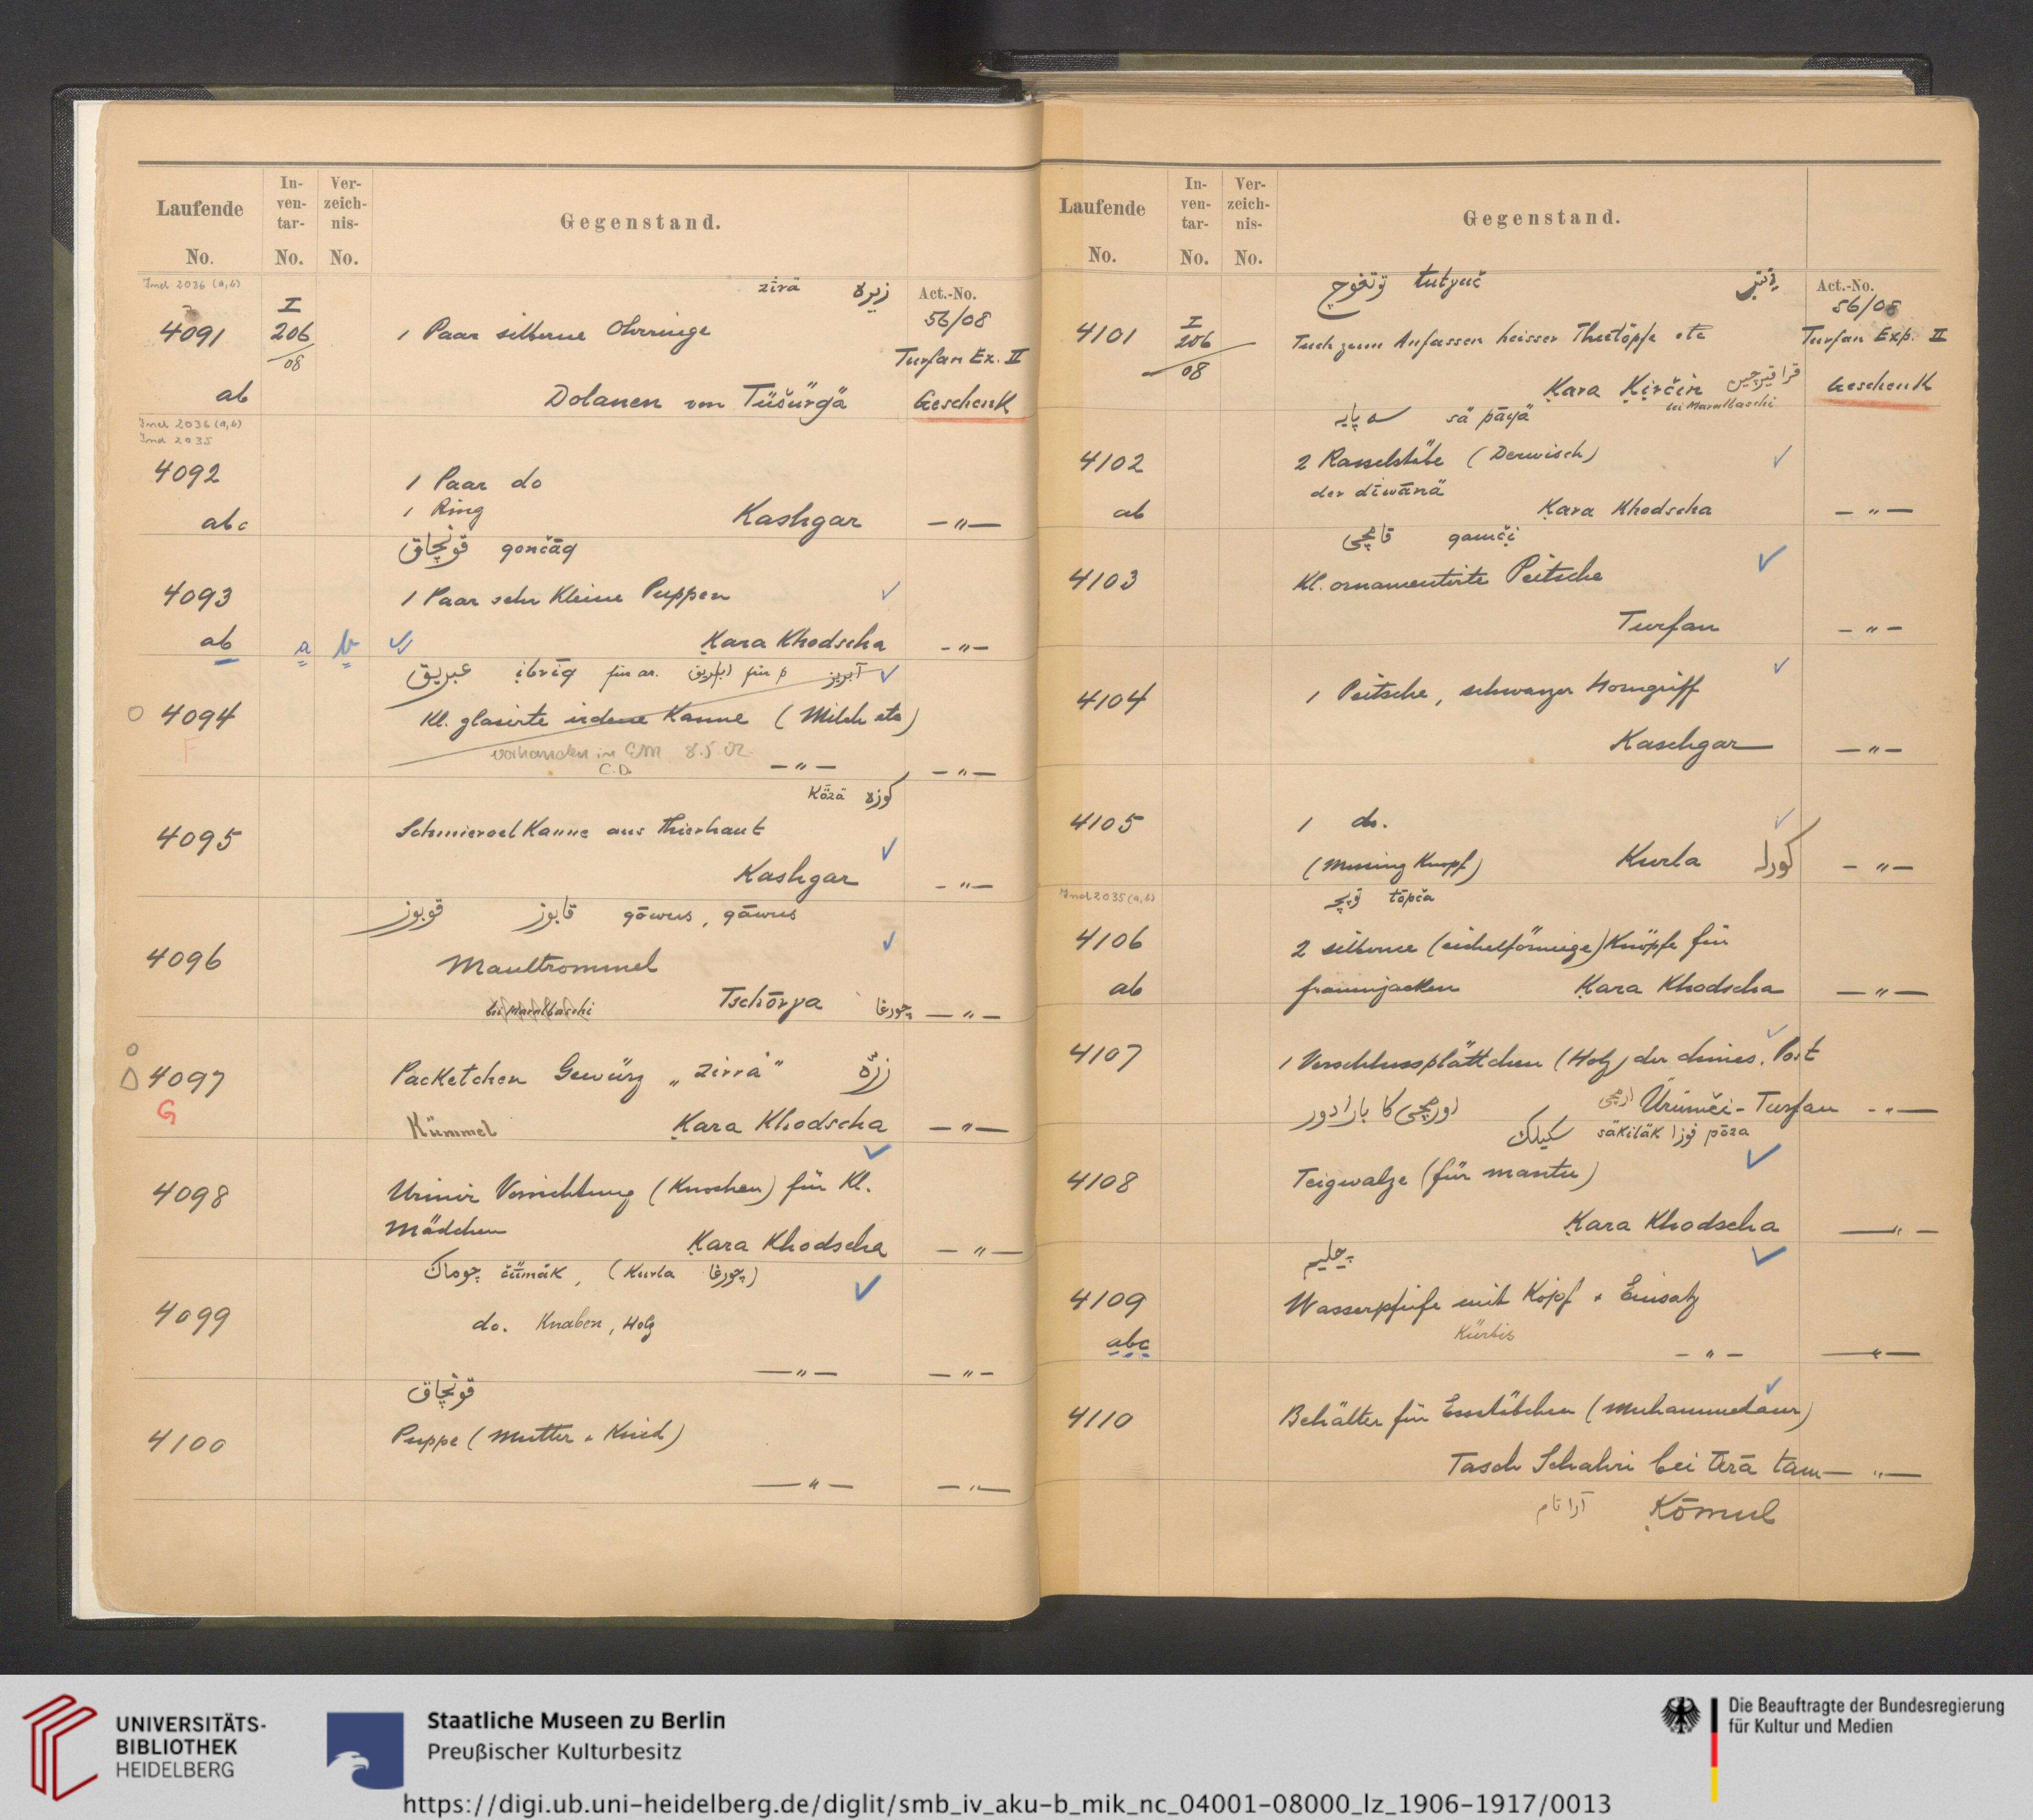 Laufende
No.
In-
ven-
tar-
No.
Ver-
zeich-
nis-
No.
Gegenstand.
Act.-No.
56/08
Turfan Ex. II
Geschenk
Ind 2036 (a,b)
zīrä زيره
4091
I
206
/08
1 Paar silberne Ohrringe
ab
Dolanen von Tüšürgä
Ind 2036 (a,b)
Ind 2035
4092
1 Paar do
1 Ring
abc
Kashgar — „ —
قونچاق qončāq
4093
1 Paar sehr kleine Puppen
ab a b
Ḳara Khodscha — „ —
عبريق ibrīq für ar. ابريق für p آبريز
4094
F
Kl. glasirte irdene Kanne (Milch etc)
vorhanden in EM
C.D.
— „ — — „ —
Közä كوزه
4095
Schmieroel Kanne aus Thierhaut
Kashgar — „ —
قوبوز قابوز qōwus, qāwus
4096
Maultrommel
bei Maralbaschi
Tschōrγa چورغا — „ —
4097
G
Packetchen Gewürz „zirrä" زرّه
Kümmel
Ḳara Khodscha — „ —
4098
Urinir Vorrichtung (Knochen) für Kl.
Mädchen
Ḳara Khodscha — „ —
چوماك čümäk, (Kurla چورغا)
4099
do. Knaben, Holz
— „ — — „ —
قونچاق
4100
Puppe (Mutter + Kind)
— „ — — „ —
Laufende
No.
In-
ven-
tar-
No.
Ver-
zeich-
nis-
No.
Gegenstand.
Act.-No.
56/08
Turfan Exp. II
Geschenk
توتغوچ tutγuč
4101
I
206
/08
Tuch zum Anfassen heisser Theetöpfe etc
Ḳara Ḳirčin قراقيرچين
bei Maralbaschi
سه پايه sä pāyä
4102
2 Rasselstäbe (Derwisch)
der dīwānä
ab
Ḳara Khodscha — „ —
قامچى qamči
4103
Kl. ornamentirte Peitsche
Turfan — „ —
4104
1 Peitsche, schwarzer Horngriff
Kaschgar — „ —
4105
1 do.
(Messing Knopf) Kurla كورلا — „ —
Ind 2035 (a,b)
توپچه tōpča
4106
2 silberne (eichelförmige) Knöpfe für
ab
Frauenjacken Ḳara Khodscha — „ —
4107
1 Verschlussplättchen (Holz) der chines. Post
Ürümči - Turfan — „ —
سكيلك säkiläk pōza
4108
Teigwalze (für mantu)
Ḳara Khodscha — „ —
چيليم
4109
Wasserpfeife mit Kopf + Einsatz
Kürbis
abc
— „ — — „ —
4110
Behälter für Essstäbchen (Muhammedaner)
Tasch Schahri bei Ara tam — „ —
آرا تام Ḳōmul
UNIVERSITÄTS-
BIBLIOTHEK
HEIDELBERG
Staatliche Museen zu Berlin
Preußischer Kulturbesitz
Die Beauftragte der Bundesregierung
für Kultur und Medien
https://digi.ub.uni-heidelberg.de/diglit/smb_iv_aku-b_mik_nc_04001-08000_lz_1906-1917/0013